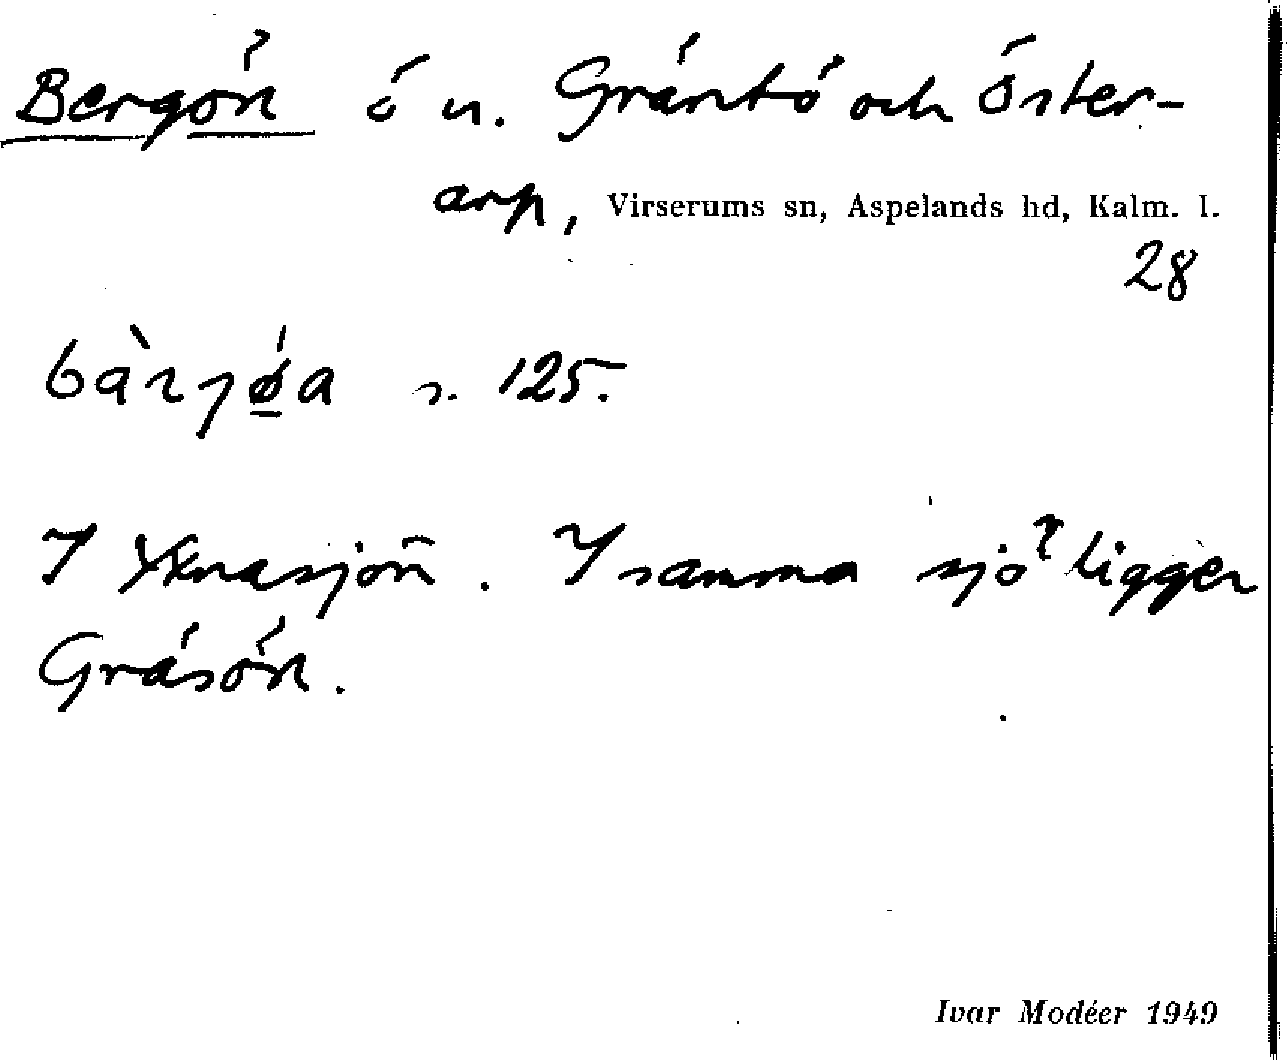 Bergön ö u. Gräntö och Öster-
arp, Virserums sn, Aspelands hd, Kalm. l.
28
s. 125.
I Yknasjön. I samma sjö ligger
Gräsön.
Ivar Modéer 1949